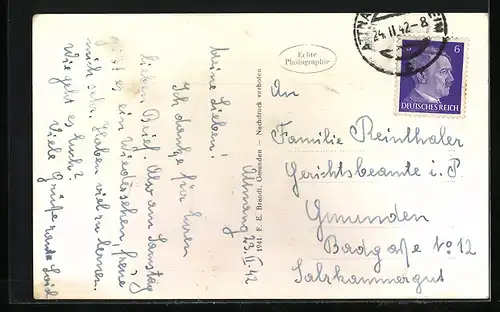 Attnang
23.II.42
Meine Lieben!
Ich danke für Euren
lieben Brief. Also am Samstag
gibt es ein Wiedersehen, freue
mich sehr. Haben viel zu lernen.
Wie geht es Euch?
Viele Grüße
1941 F. E. Brandt, Gmunden — Nachdruck verboten
Echte
Photographie
24.II.42-8
6
DEUTSCHES REICH
An
Familie Reinthaler
Gerichtsbeamte i. P.
Gmunden
Baagaße No 12
Salzkammergut